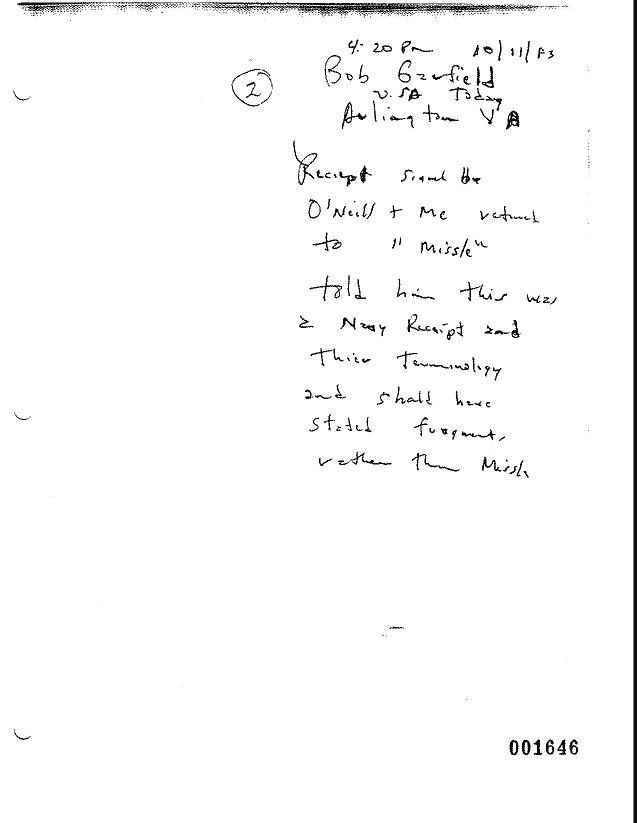 4:20 Pm 10/11/83
2
Bob Garfield
USA Today
Arlington VA
Reciept signed be
O'Neill + Me
to "Missle"
told him this was
a Navy Receipt and
thier Terminology
and shald have
stated fragment,
rather than Missle
001646